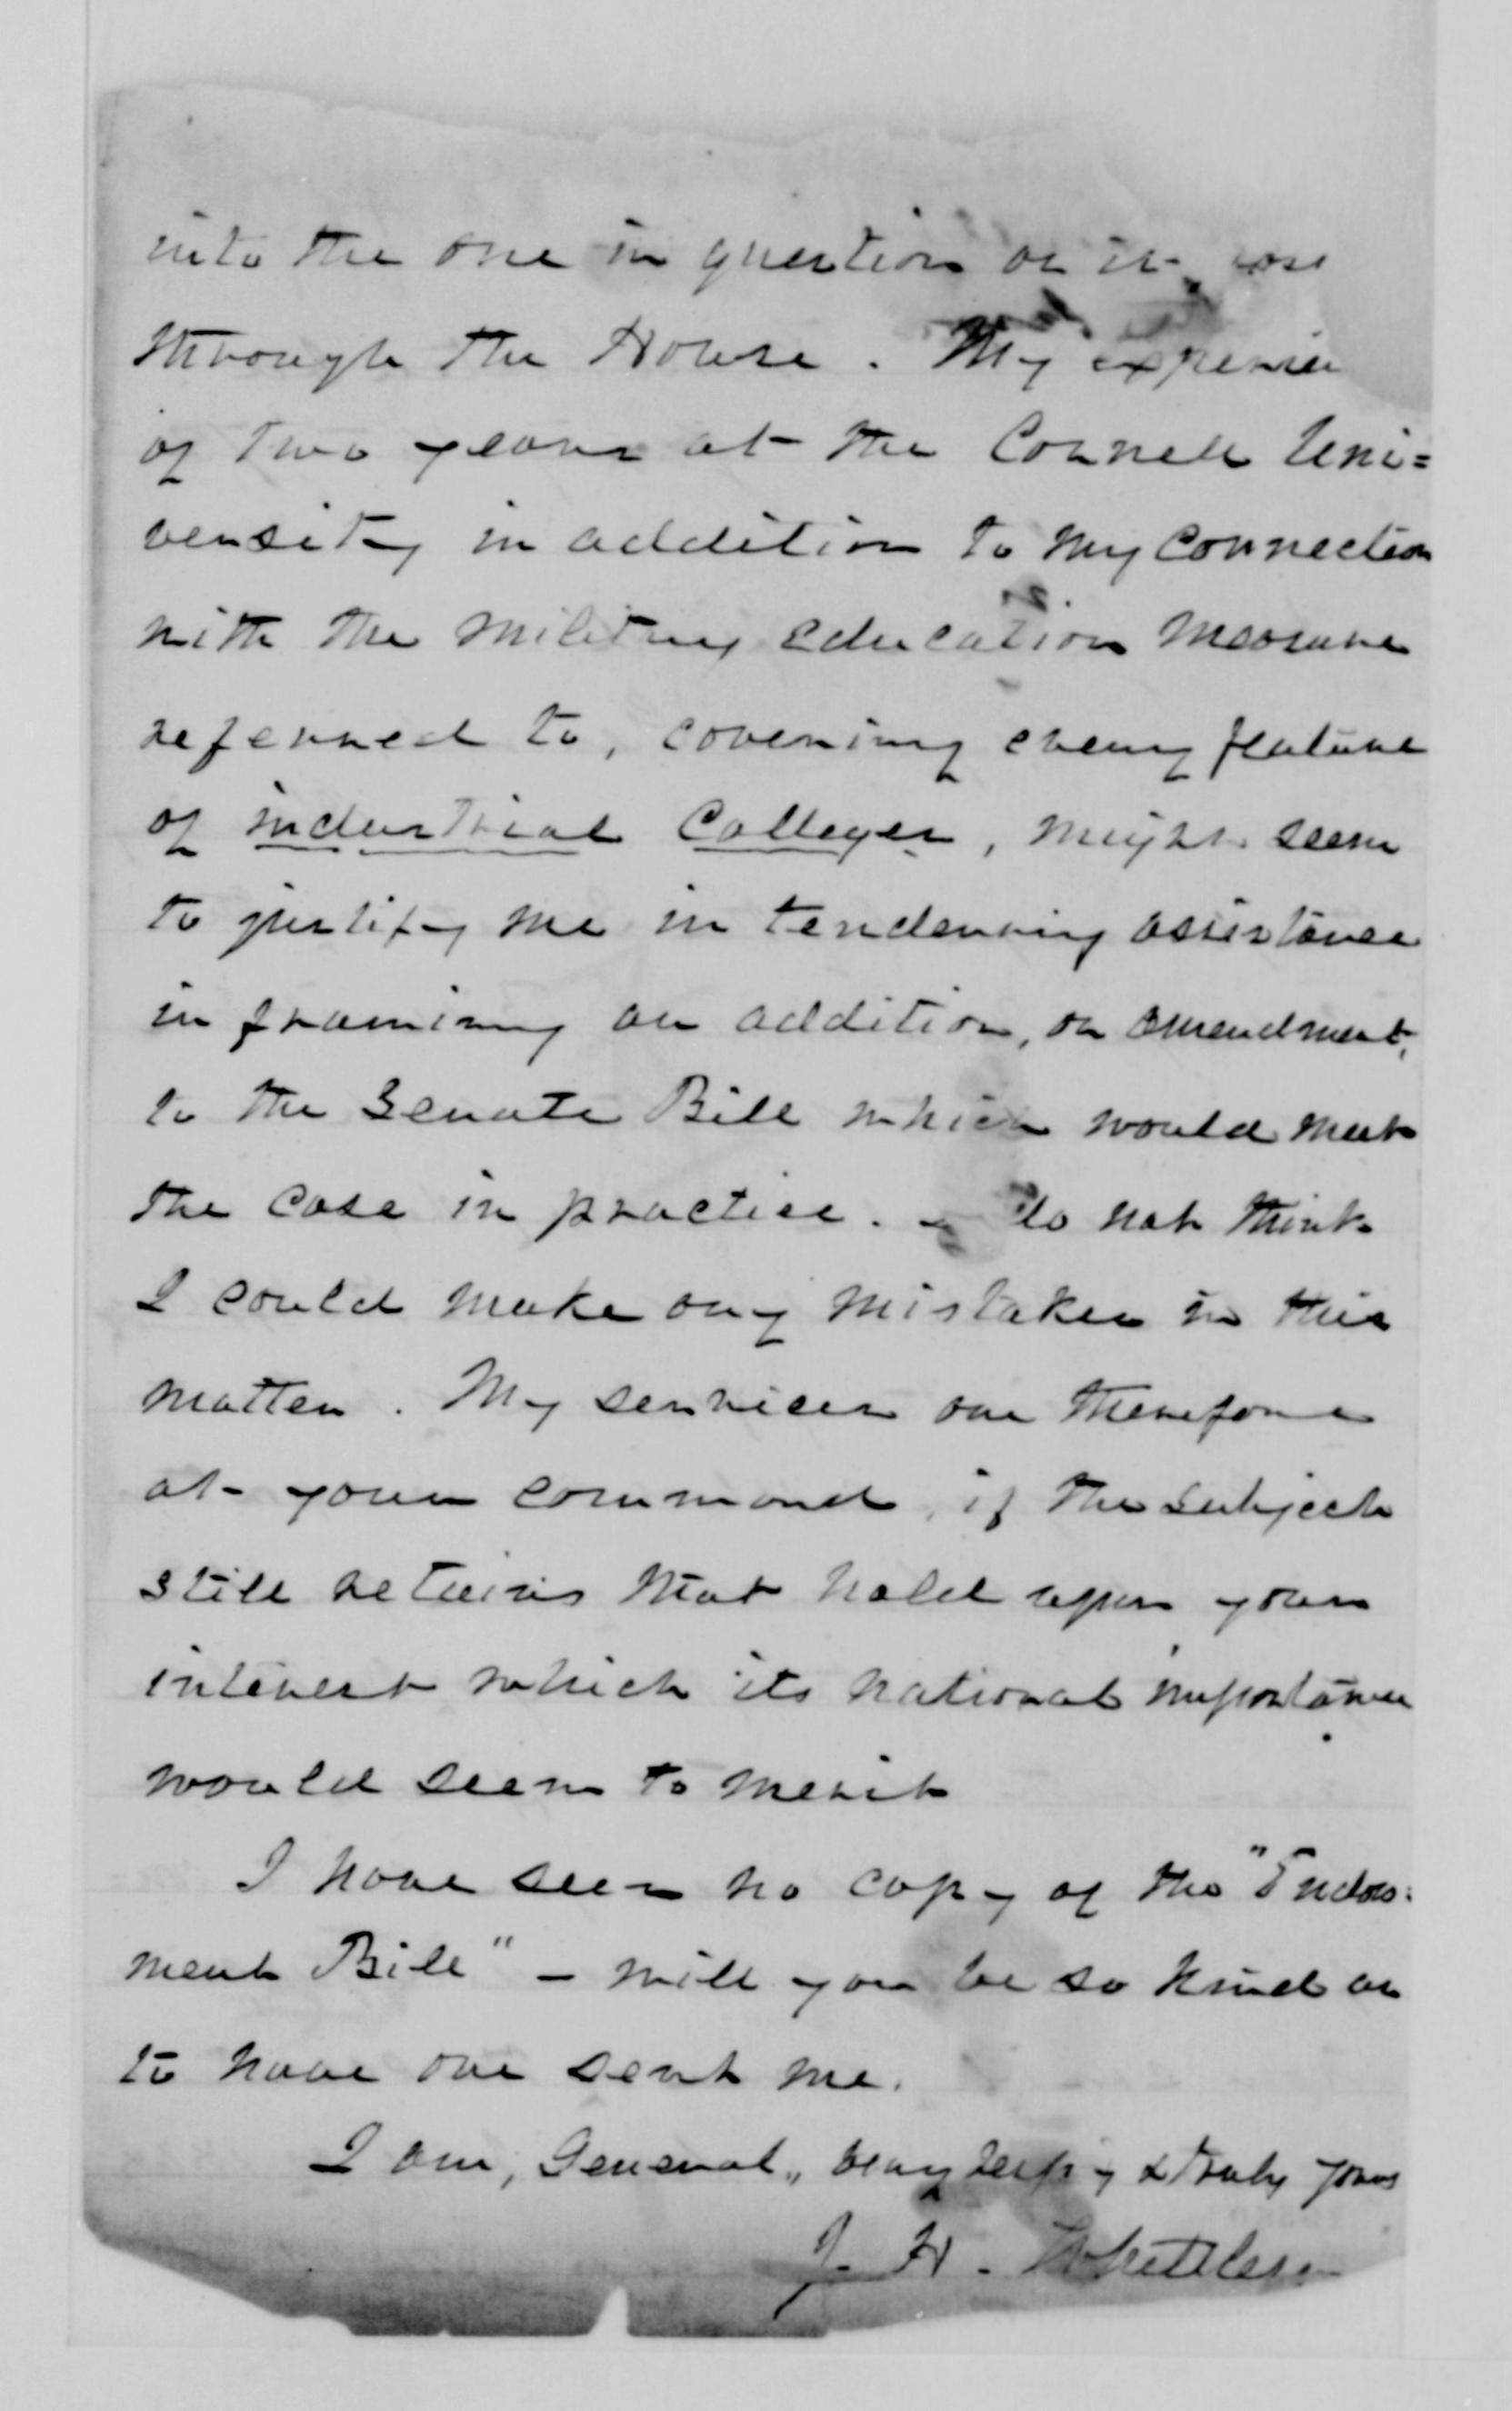 into the one in question as it
through the House. My experience
of two years at the Cornell Uni=
versity in addition to my connection
with the military education measure
referred to, covering every feature
of industrial Colleges, might seem
to justify me in tendering assistance
in framing an addition, or amendment,
to the Senate Bill which would meet
the case in practice. do not think
I could make any mistakes in this
matter. My services are therefore
at your command, if the subject
still retains that hold upon your
interest which its national importance
would seem to merit
I have seen no copy of the "Endow=
ment Bill" - will you be so kind as
to have one sent me.
I am, General, very resp'y & truly yours
J. H. Whittlesey